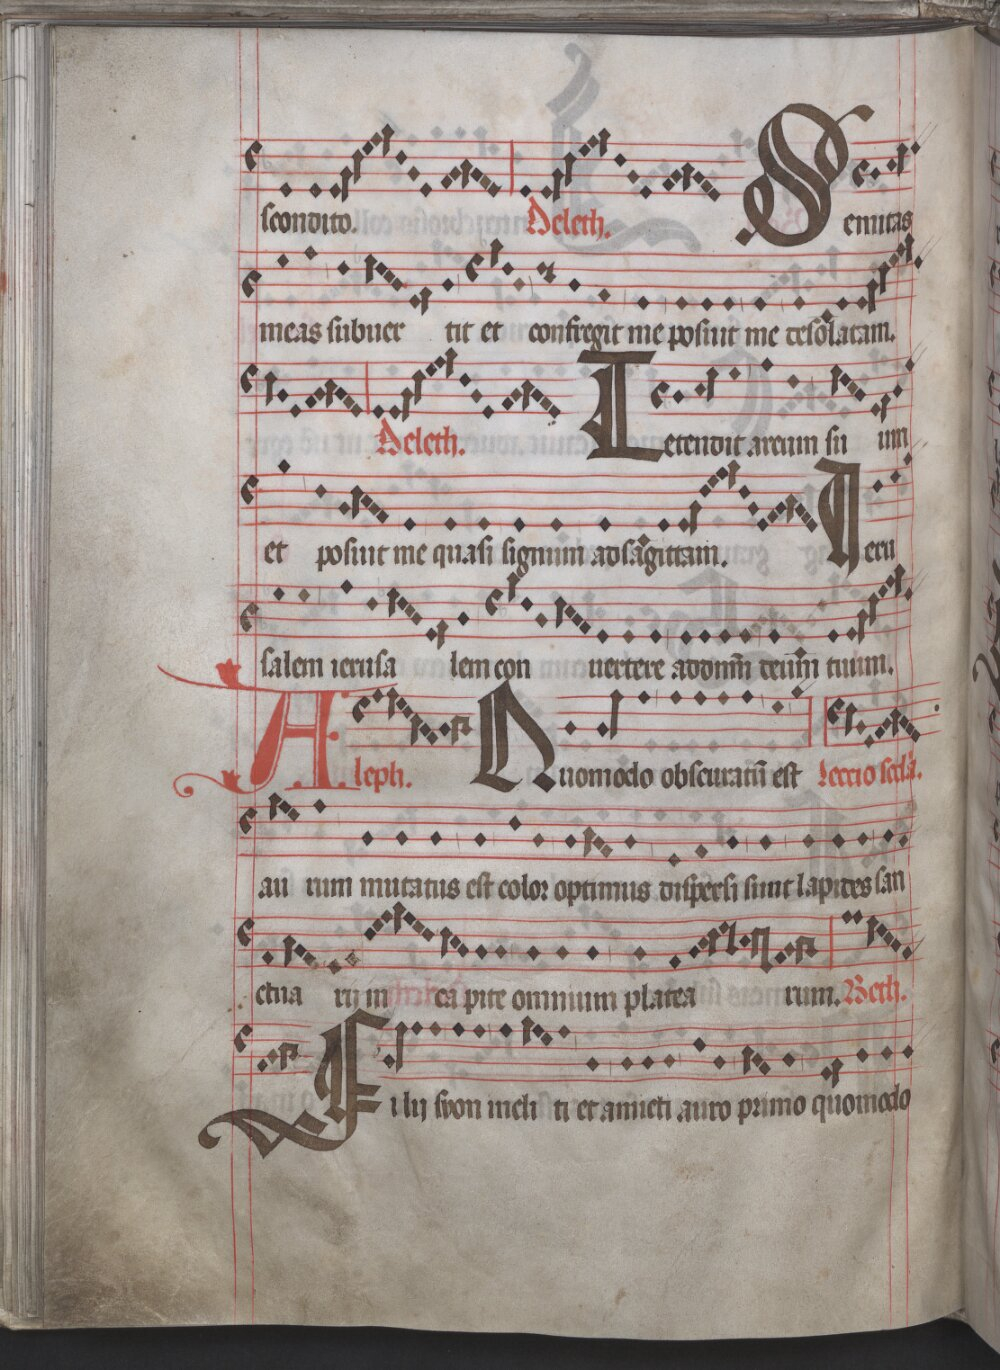 scondito. Deleth. Semitas
meas subuer tit et confregit me posuit me desolatam.
Deleth. Tetendit arcum su um
et posuit me quasi signum ad sagittam. Ieru
salem ierusa lem con uertere ad dominū deum tuum.
Aleph. Quomodo obscuratū est Leccio scda.
au rum mutatus est color optimus dispersi sunt lapides san
ctua rij in ca pite omnium platea rum. Beth.
Filij syon incli ti et amicti auro primo quomodo